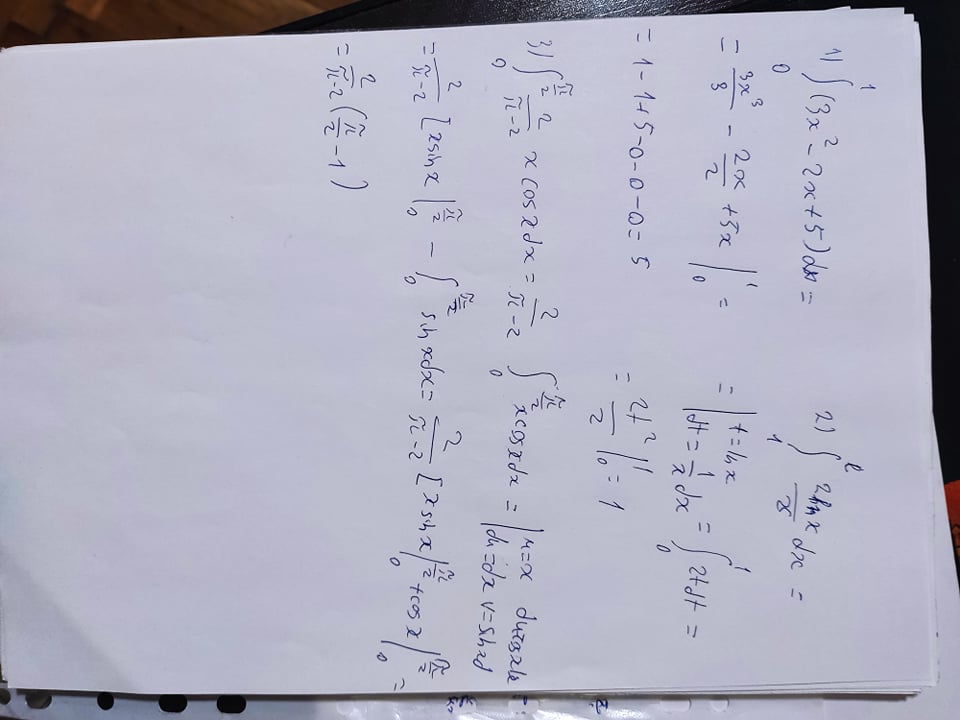 1) ∫₀¹ (3x² - 2x + 5) dx =
= 3x³/3 - 2x/2 + 5x |₀¹ =
= 1 - 1 + 5 - 0 - 0 - 0 = 5
2) ∫₁ᵉ 2lnx/x dx =
= | t = lnx
dt = 1/x dx = ∫₀¹ 2t dt =
= 2t²/2 |₀¹ = 1
3) ∫₀^(π/2) 2/(π-2) x cosx dx = 2/(π-2) ∫₀^(π/2) x cosx dx = | u = x
du = dx v = sin
= 2/(π-2) [x sinx |₀^(π/2) - ∫₀^(π/2) sinx dx = 2/(π-2) [x sinx |₀^(π/2) + cosx |₀^(π/2) =
= 2/(π-2) (π/2 - 1)